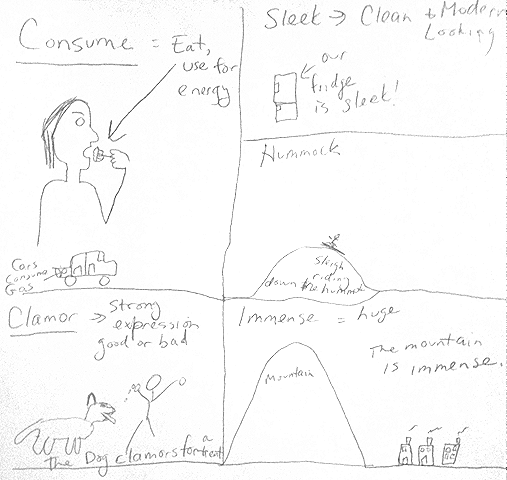 Consume = Eat,
use for
energy
Cars
Consume
Gas
Sleek → Clean & Modern
Looking
our
fridge
is sleek!
Hummock
Sleigh
riding
down the hummock
Clamor → Strong
expression
good or bad
The Dog clamors for a treat
Immense = huge
Mountain
The mountain
is immense.